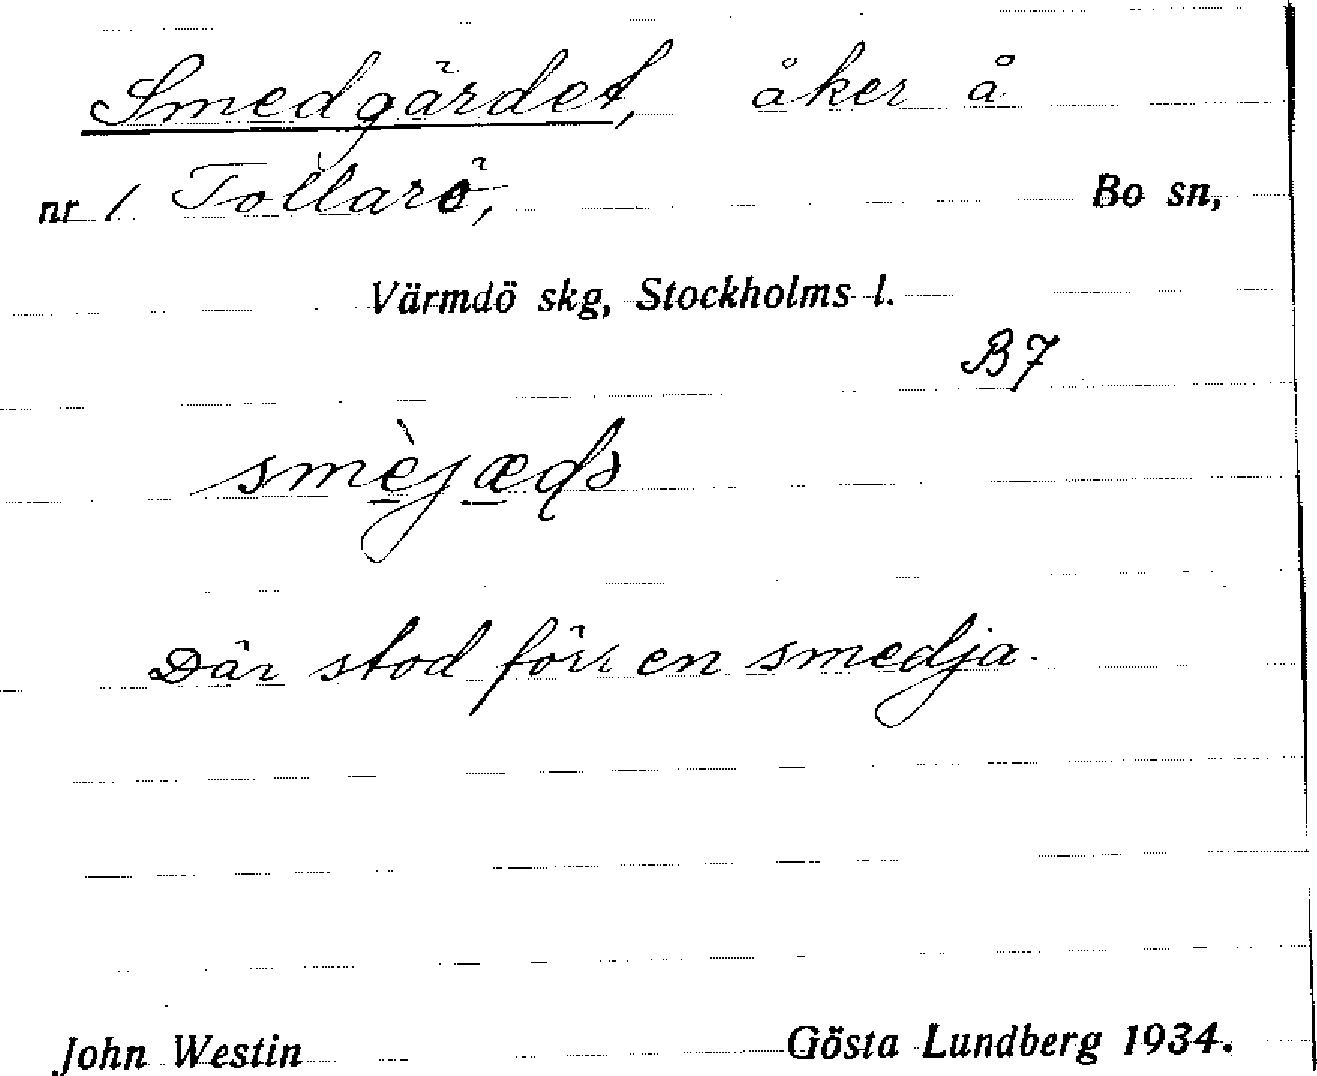 Smedgärdet, åker å
nr 1 Tollarö, Bo sn,
Värmdö skg, Stockholms l.
B7
smèjæds
Där stod förr en smedja.
John Westin Gösta Lundberg 1934.